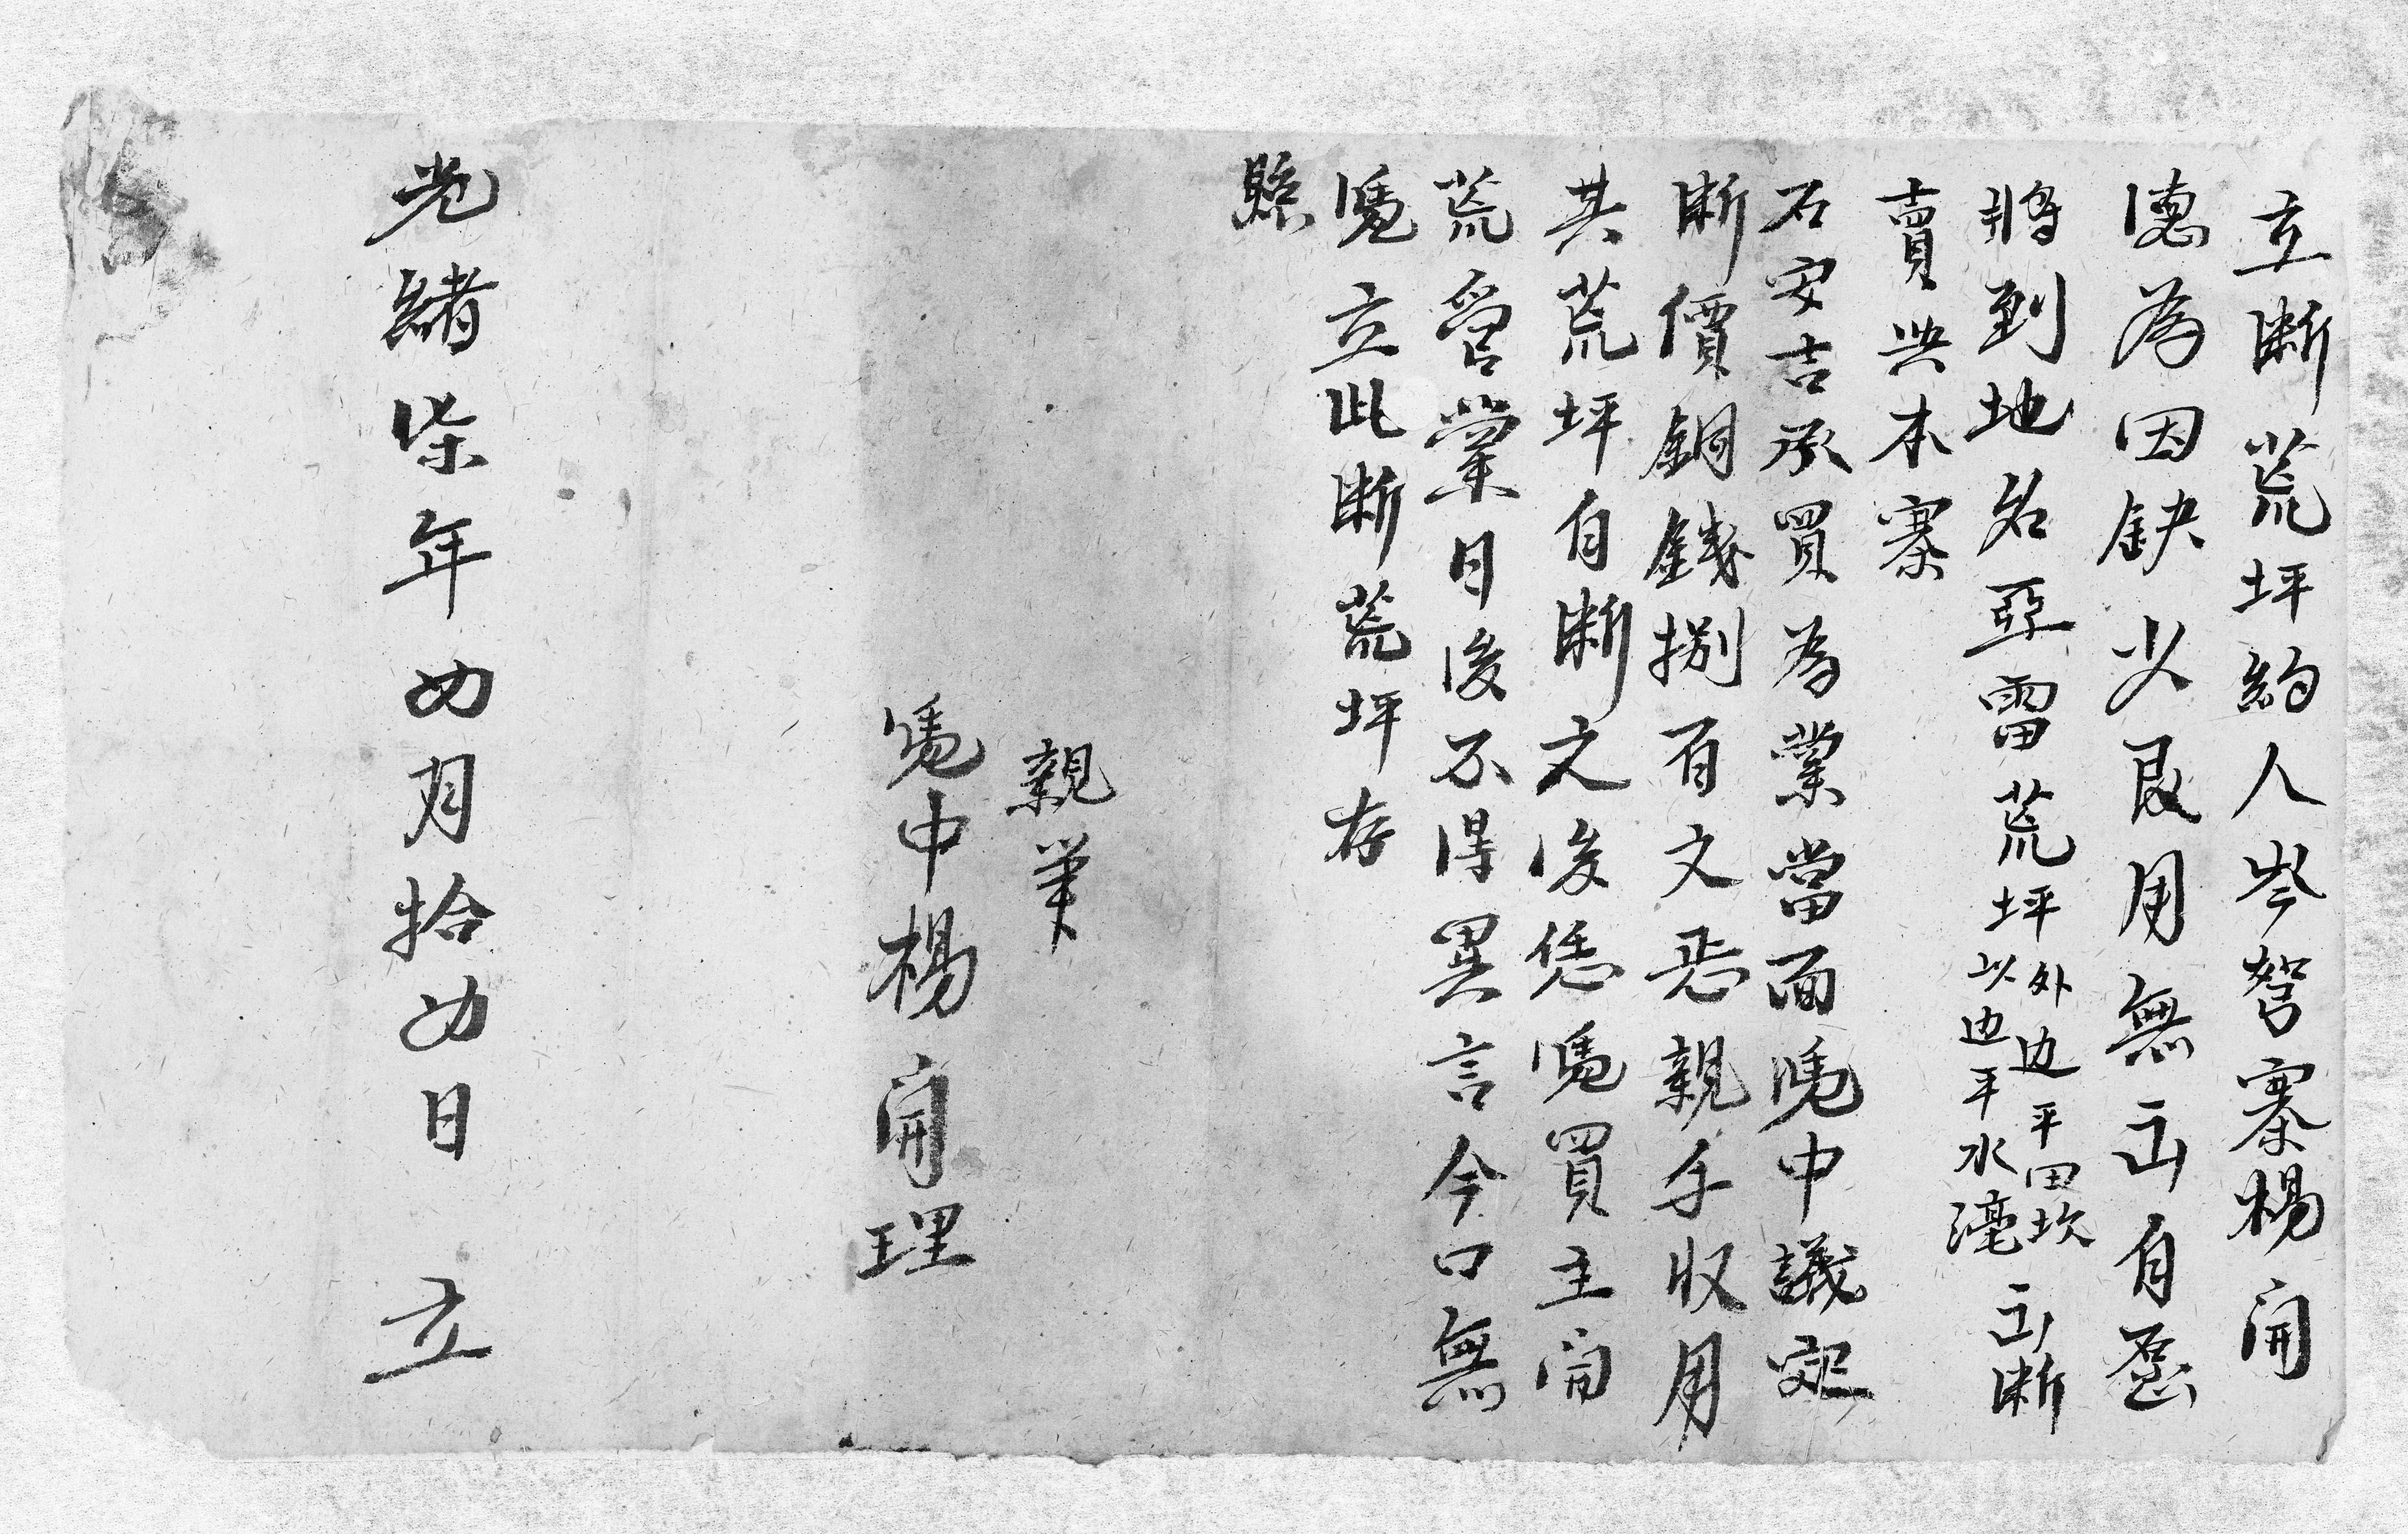 立断荒坪約人岑努寨楊開
德為因缺少艮用無出自愿
將到地名亞雷荒坪外边平田坎
以边平水溝出断
賣與本寨
石安吉承買為業當面憑中議定
断價銅錢捌百文恁親手收用
其荒坪自断之後恁憑買主開
荒管業日後不得異言今口無
憑立此断荒坪存
縣
親筆
憑中楊開理
光緒柒年四月拾四日 立